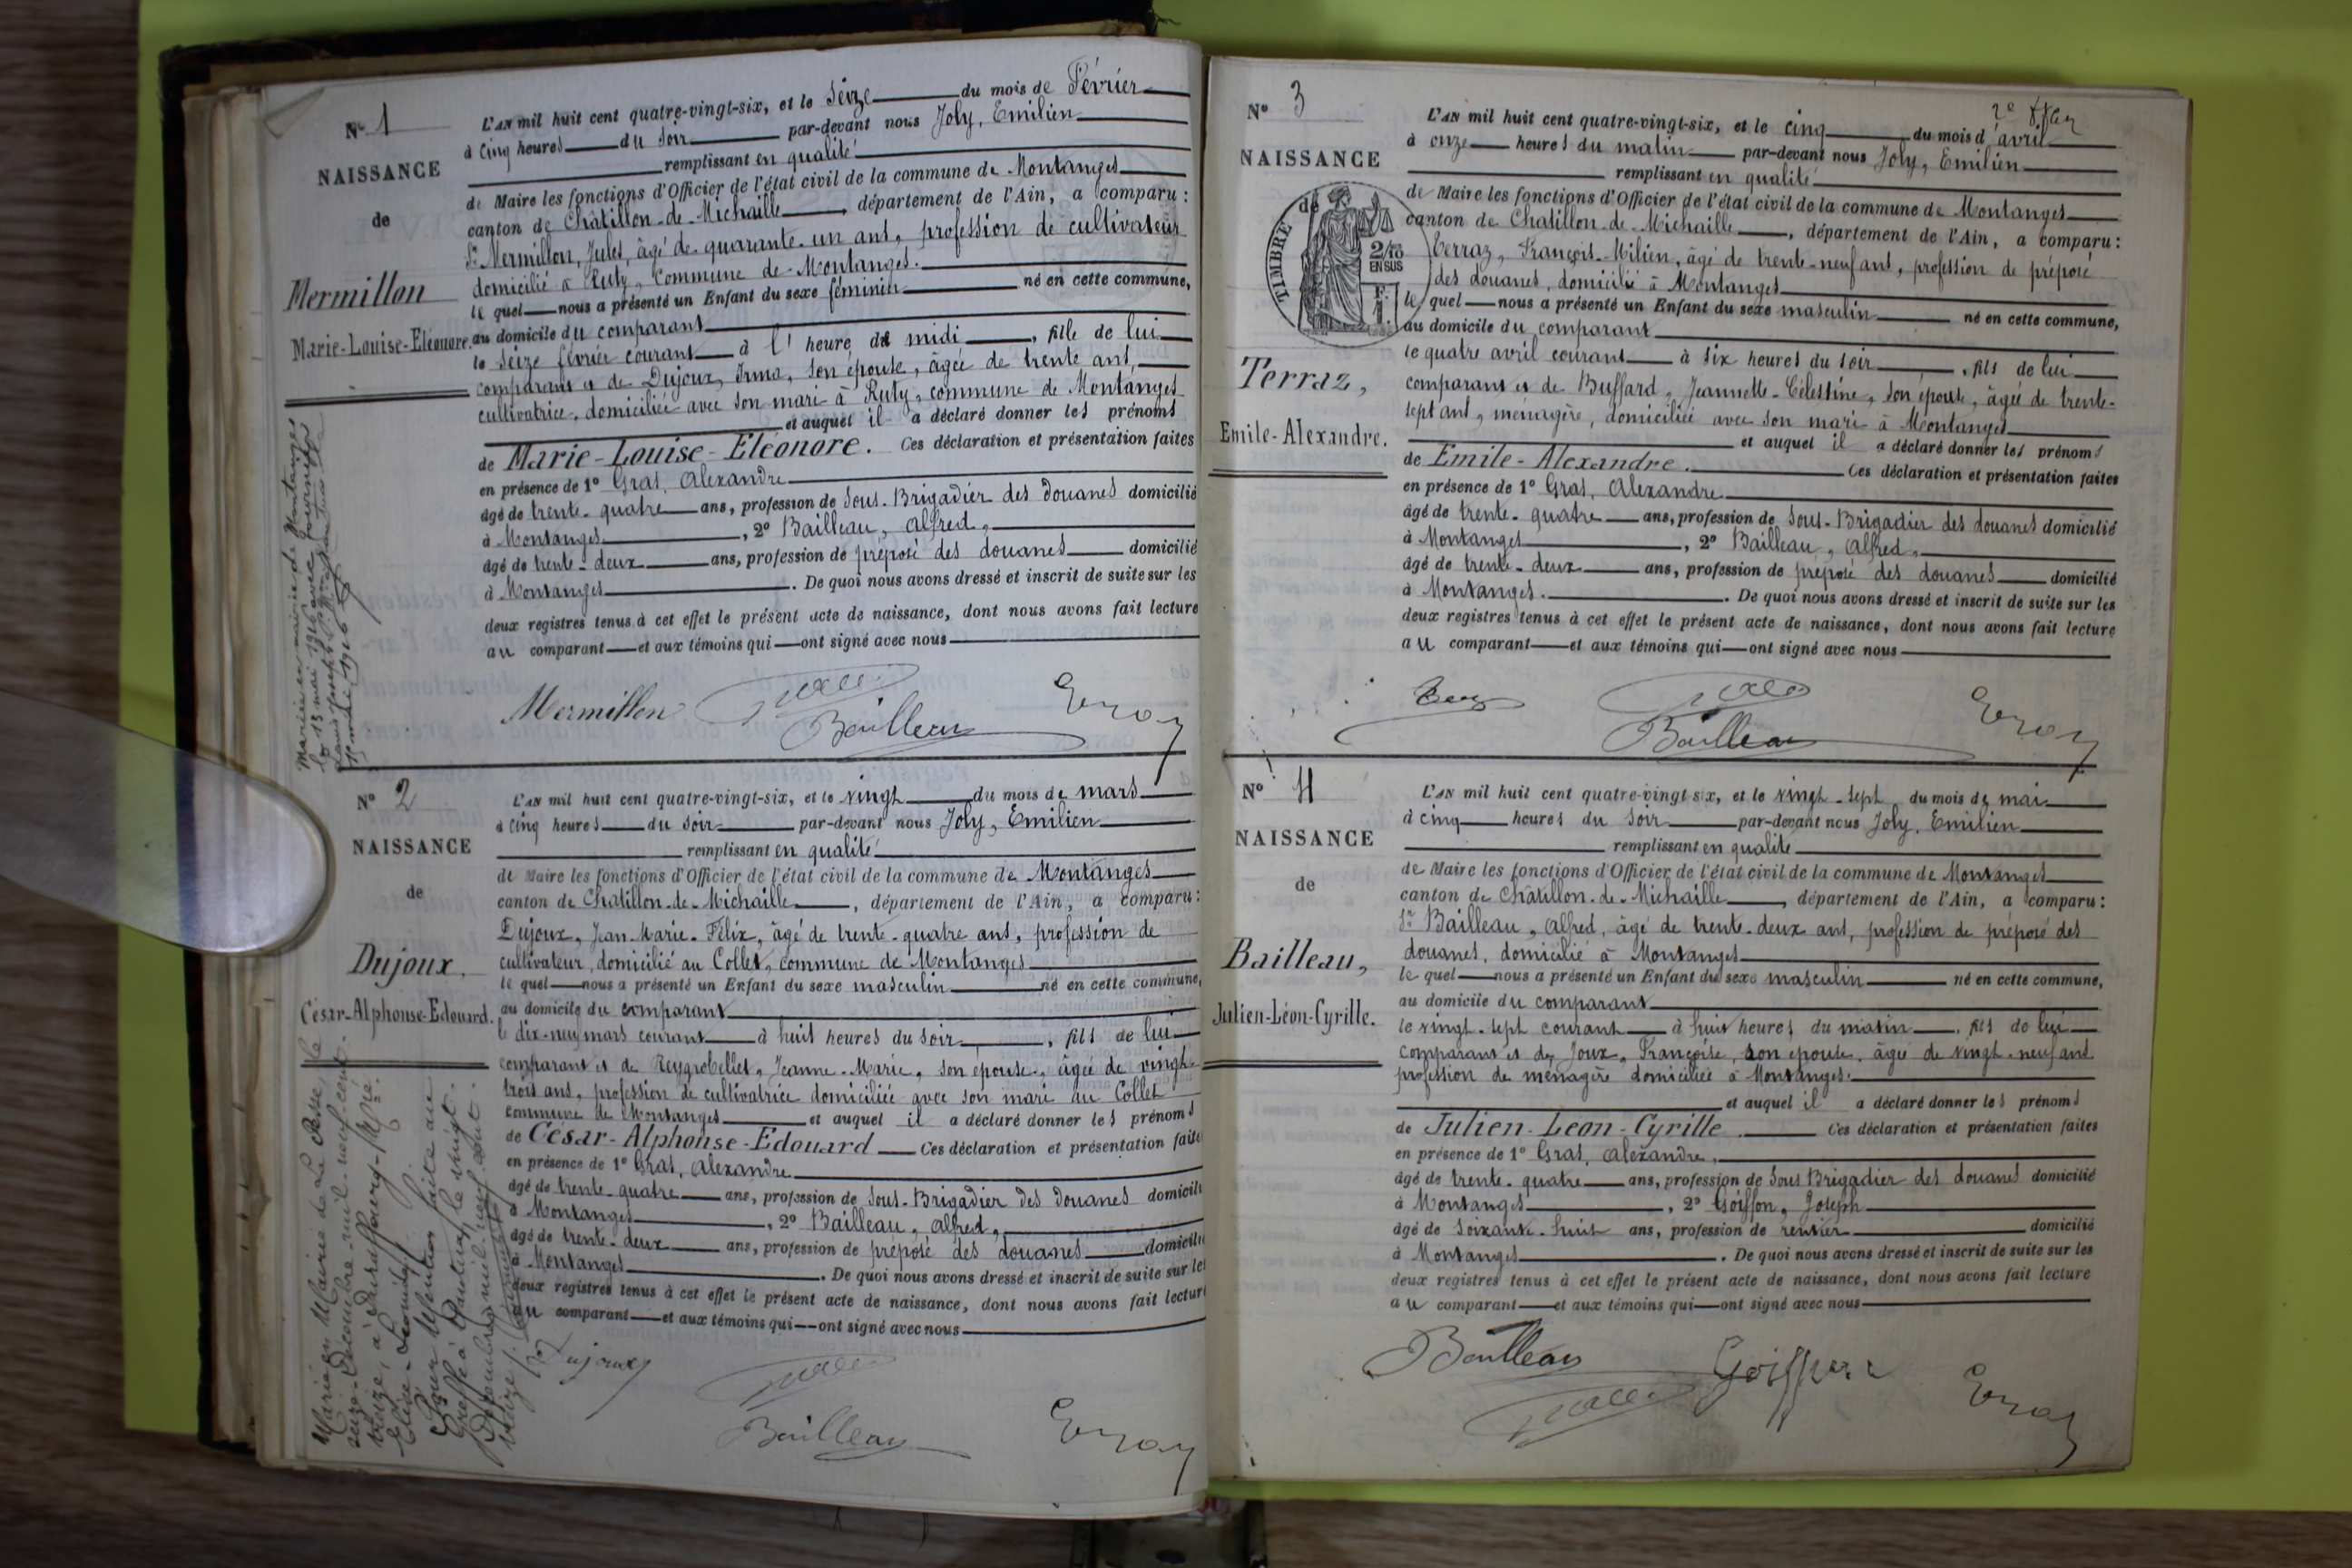 N° 1
NAISSANCE
de
Mermillon
Marie-Louise-Eléonore.
L'AN mil huit cent quatre-vingt-six, et le seize du mois de Février
à cinq heures du soir par-devant nous Joly, Emilien
remplissant en qualité
de Maire les fonctions d'Officier de l'état civil de la commune de Montanges
canton de Châtillon-de-Michaille, département de l'Ain, a comparu :
Sr Mermillon, Jules, âgé de quarante-un ans, profession de cultivateur
domicilié à Ruty, commune de Montanges.
le quel nous a présenté un Enfant du sexe féminin né en cette commune,
au domicile du comparant
le seize février courant à l'heure de midi, fille de lui
comparant et de Dujoux, Irma, son épouse, âgée de trente ans,
cultivatrice, domiciliée avec son mari à Ruty, commune de Montanges
et auquel il a déclaré donner les prénoms
de Marie-Louise-Eléonore. Ces déclaration et présentation faites
en présence de 1° Gras, Alexandre
âgé de trente-quatre ans, profession de Sous-Brigadier des douanes domicilié
à Montanges, 2° Bailleau, Alfred,
âgé de trente-deux ans, profession de préposé des douanes domicilié
à Montanges. De quoi nous avons dressé et inscrit de suite sur les
deux registres tenus à cet effet le présent acte de naissance, dont nous avons fait lecture
au comparant et aux témoins qui ont signé avec nous
Mermillon
Bailleau
Mariée en mairie de Montanges
le 13 mai 1916 avec
N° 2
NAISSANCE
de
Dujoux.
César-Alphonse-Edouard.
L'AN mil huit cent quatre-vingt-six, et le vingt du mois de mars
à cinq heures du soir par-devant nous Joly, Emilien
remplissant en qualité
de Maire les fonctions d'Officier de l'état civil de la commune de Montanges
canton de Châtillon-de-Michaille, département de l'Ain, a comparu :
Dujoux, Jean-Marie-Félix, âgé de trente-quatre ans, profession de
cultivateur, domicilié au Collet, commune de Montanges
le quel nous a présenté un Enfant du sexe masculin né en cette commune,
au domicile du comparant
le dix-neuf mars courant à huit heures du soir, fils de lui
comparant et de Reygrobellet, Jeanne-Marie, son épouse, âgée de vingt-
trois ans, profession de cultivatrice domiciliée avec son mari au Collet
commune de Montanges et auquel il a déclaré donner les prénoms
de César-Alphonse-Edouard Ces déclaration et présentation faites
en présence de 1° Gras, Alexandre
âgé de trente-quatre ans, profession de Sous-Brigadier des douanes domicilié
à Montanges, 2° Bailleau, Alfred,
âgé de trente-deux ans, profession de préposé des douanes domicilié
à Montanges. De quoi nous avons dressé et inscrit de suite sur les
deux registres tenus à cet effet le présent acte de naissance, dont nous avons fait lecture
au comparant et aux témoins qui ont signé avec nous
Dujoux
Bailleau
Marié en Mairie de La Pesse, le
seize Décembre mil-neuf-cent-
N° 3
NAISSANCE
de
TIMBRE
2/10
EN SUS
Terraz,
Emile-Alexandre.
L'AN mil huit cent quatre-vingt-six, et le cinq du mois d'avril
à onze heures du matin par-devant nous Joly, Emilien
remplissant en qualité
de Maire les fonctions d'Officier de l'état civil de la commune de Montanges
canton de Châtillon-de-Michaille, département de l'Ain, a comparu :
Terraz, François-Milien, âgé de trente-neuf ans, profession de préposé
des douanes, domicilié à Montanges
le quel nous a présenté un Enfant du sexe masculin né en cette commune,
au domicile du comparant
le quatre avril courant à six heures du soir, fils de lui
comparant et de Buffard, Jeannette-Célestine, son épouse, âgée de trente-
sept ans, ménagère, domiciliée avec son mari à Montanges
et auquel il a déclaré donner les prénoms
de Emile-Alexandre. Ces déclaration et présentation faites
en présence de 1° Gras, Alexandre
âgé de trente-quatre ans, profession de Sous-Brigadier des douanes domicilié
à Montanges, 2° Bailleau, Alfred,
âgé de trente-deux ans, profession de préposé des douanes domicilié
à Montanges. De quoi nous avons dressé et inscrit de suite sur les
deux registres tenus à cet effet le présent acte de naissance, dont nous avons fait lecture
au comparant et aux témoins qui ont signé avec nous
Bailleau
N° 4
NAISSANCE
de
Bailleau,
Julien-Léon-Cyrille.
L'AN mil huit cent quatre-vingt-six, et le vingt-sept du mois de mai
à cinq heures du soir par-devant nous Joly, Emilien
remplissant en qualité
de Maire les fonctions d'Officier de l'état civil de la commune de Montanges
canton de Châtillon-de-Michaille, département de l'Ain, a comparu :
Sr Bailleau, Alfred, âgé de trente-deux ans, profession de préposé des
douanes, domicilié à Montanges
le quel nous a présenté un Enfant du sexe masculin né en cette commune,
au domicile du comparant
le vingt-sept courant à huit heures du matin, fils de lui
comparant et de Joux, Françoise, son épouse, âgée de vingt-neuf ans
profession de ménagère domiciliée à Montanges.
et auquel il a déclaré donner les prénoms
de Julien-Léon-Cyrille. Ces déclaration et présentation faites
en présence de 1° Gras, Alexandre,
âgé de trente-quatre ans, profession de Sous Brigadier des douanes domicilié
à Montanges, 2° Goiffon, Joseph
âgé de soixante-huit ans, profession de rentier domicilié
à Montanges. De quoi nous avons dressé et inscrit de suite sur les
deux registres tenus à cet effet le présent acte de naissance, dont nous avons fait lecture
au comparant et aux témoins qui ont signé avec nous
Bailleau
Goiffon